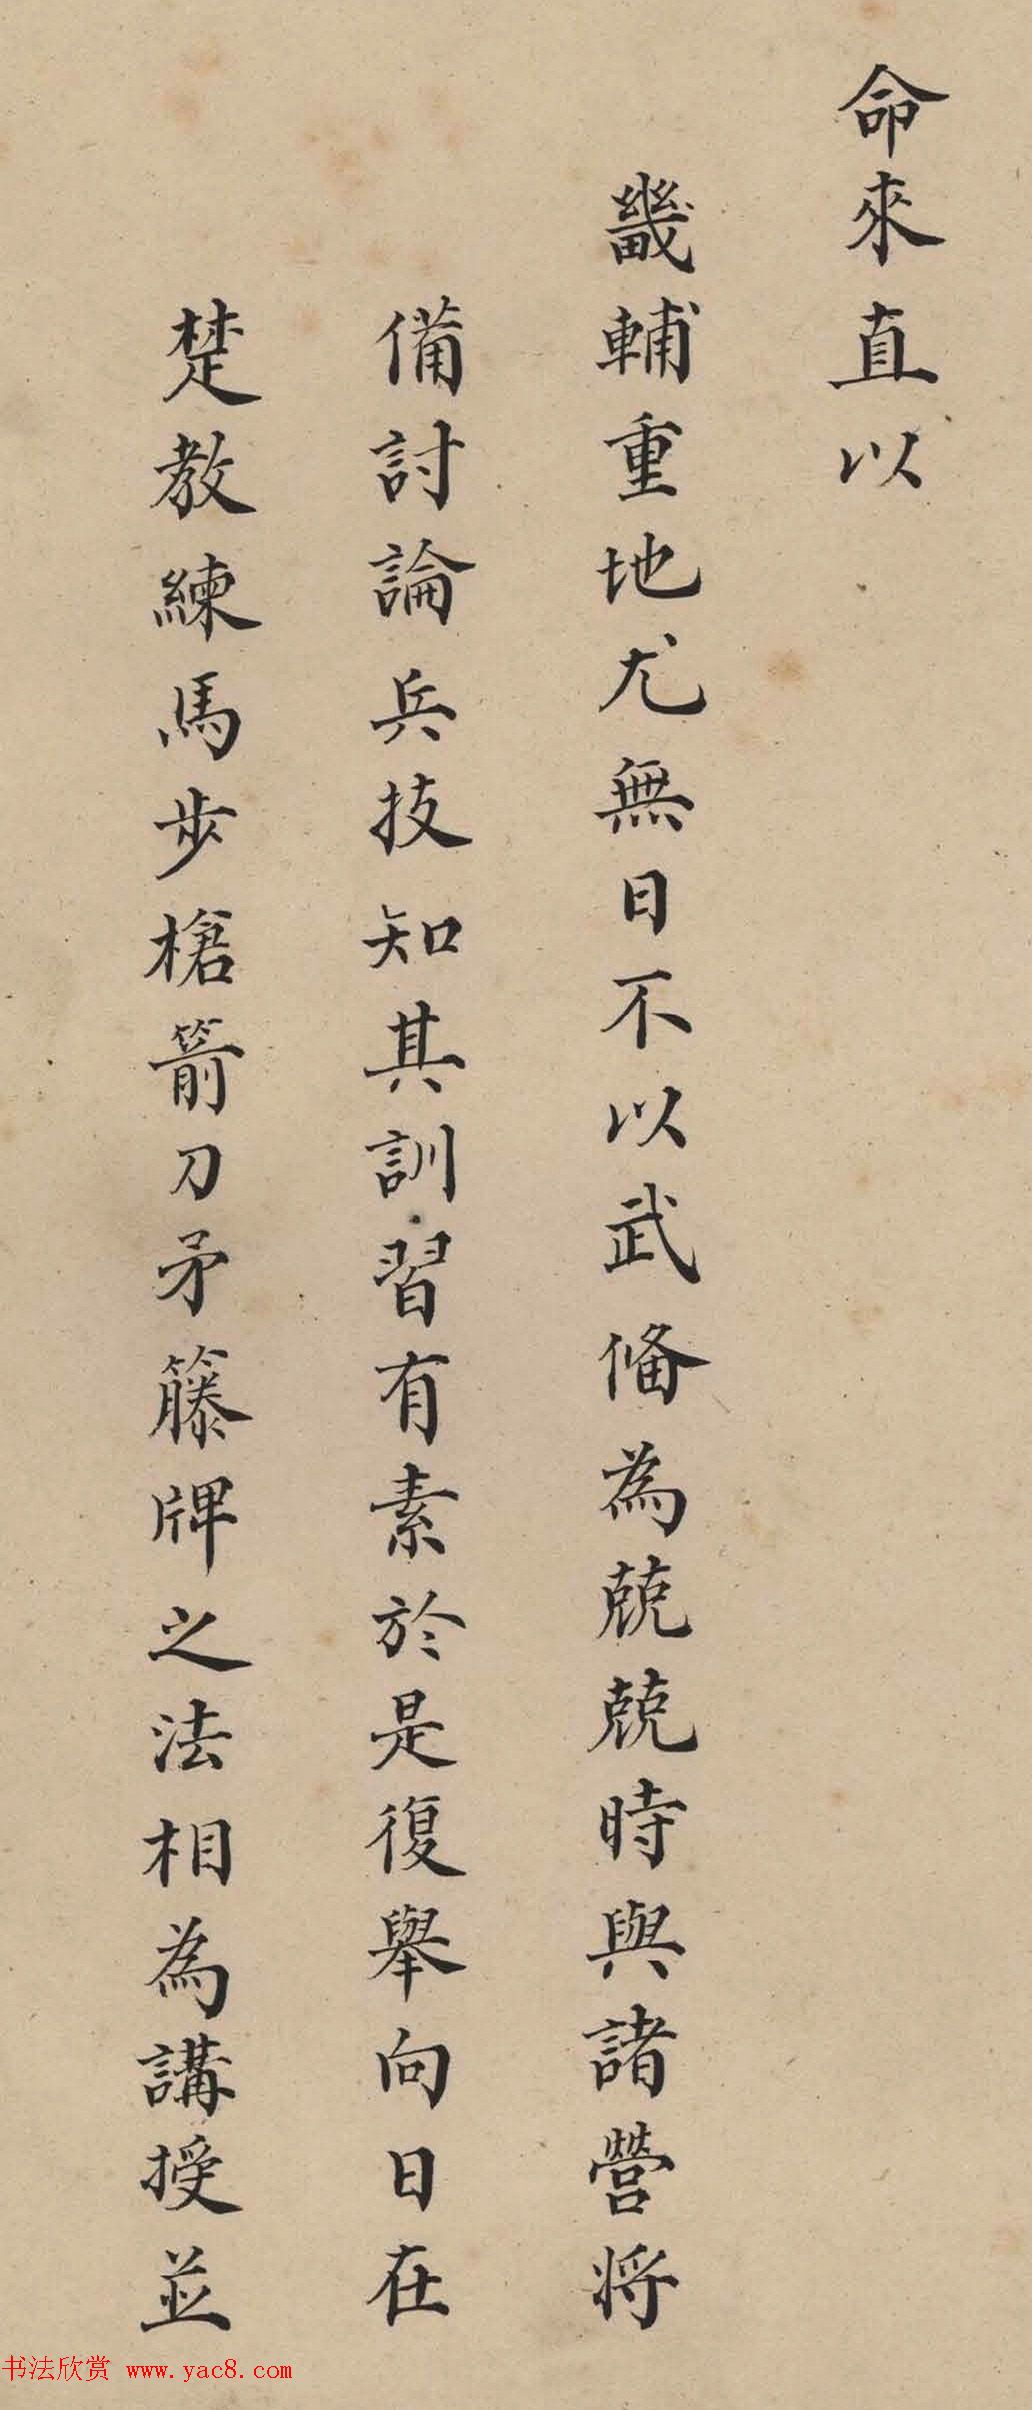 命來直以
畿輔重地尤無日不以武俻為兢兢時與諸營将
備討論兵技知其訓習有素於是復舉向日在
楚教練馬步槍箭刀矛籐牌之法相為講授並
书法欣赏 www.yac8.com